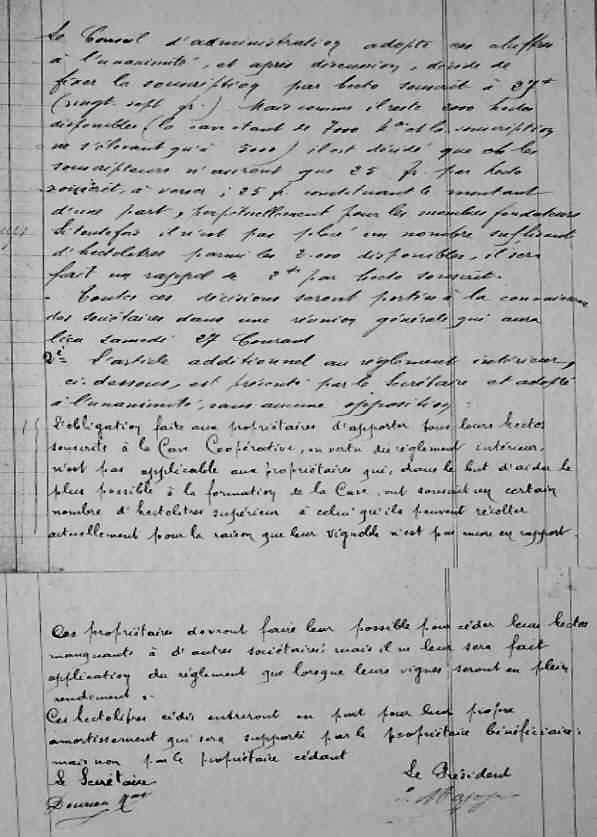 Le Conseil d'administration adopte ces chiffres
à l'unanimité, et après discussion, décide de
fixer la souscription par hecto souscrit à 27 f
(vingt-sept fr.) Mais comme il reste 2000 hectos
disponibles (la cave étant de 7000 h et la souscription
ne s'élevant qu'à 5000) il est décidé que les
souscripteurs n'auront que 25 fr. par hecto
souscrit, à verser ; 25 fr constituant le montant
d'une part, perpétuellement pour les membres fondateurs
Si toutefois il n'est pas placé un nombre suffisant
d'hectolitres parmi les 2.000 disponibles, il sera
fait un rappel de 2 f par hecto souscrit.
- Toutes ces décisions seront portées à la connaissance
des sociétaires dans une réunion générale qui aura
lieu samedi 27 Courant
2º = L'article additionnel au règlement intérieur,
ci-dessous, est présenté par le Secrétaire et adopté
à l'unanimité, sans aucune opposition :
L'obligation faite aux propriétaires d'apporter tous leurs hectos
souscrits à la Cave Coopérative, en vertu du règlement intérieur,
n'est pas applicable aux propriétaires qui, dans le but d'aider le
plus possible à la formation de la Cave, ont souscrit un certain
nombre d'hectolitres supérieur à celui qu'ils peuvent récolter
actuellement pour la raison que leur vignoble n'est pas encore en rapport.
Ces propriétaires devront faire leur possible pour céder leurs hectos
manquants à d'autres sociétaires; mais il ne leur sera fait
application du règlement que lorsque leurs vignes seront en plein
rendement.
Ces hectolitres cédés entreront en part pour leur propre
amortissement qui sera supporté par le propriétaire bénéficiaire;
mais non par le propriétaire cédant
Le Secrétaire Le Président